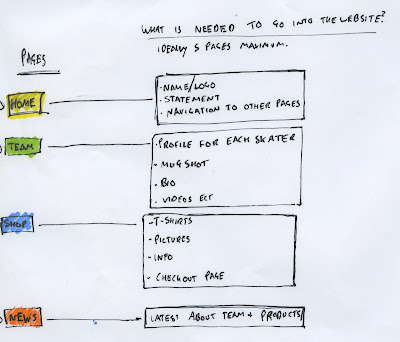 WHAT IS NEEDED TO GO INTO THE WEBSITE?
IDEALLY 5 PAGES MAXIMUM.
PAGES
HOME
- NAME/LOGO
- STATEMENT
- NAVIGATION TO OTHER PAGES
TEAM
- PROFILE FOR EACH SKATER
- MUGSHOT
- BIO
- VIDEOS ECT
SHOP
- T-SHIRTS
- PICTURES
- INFO
- CHECKOUT PAGE
NEWS
LATEST ABOUT TEAM + PRODUCTS